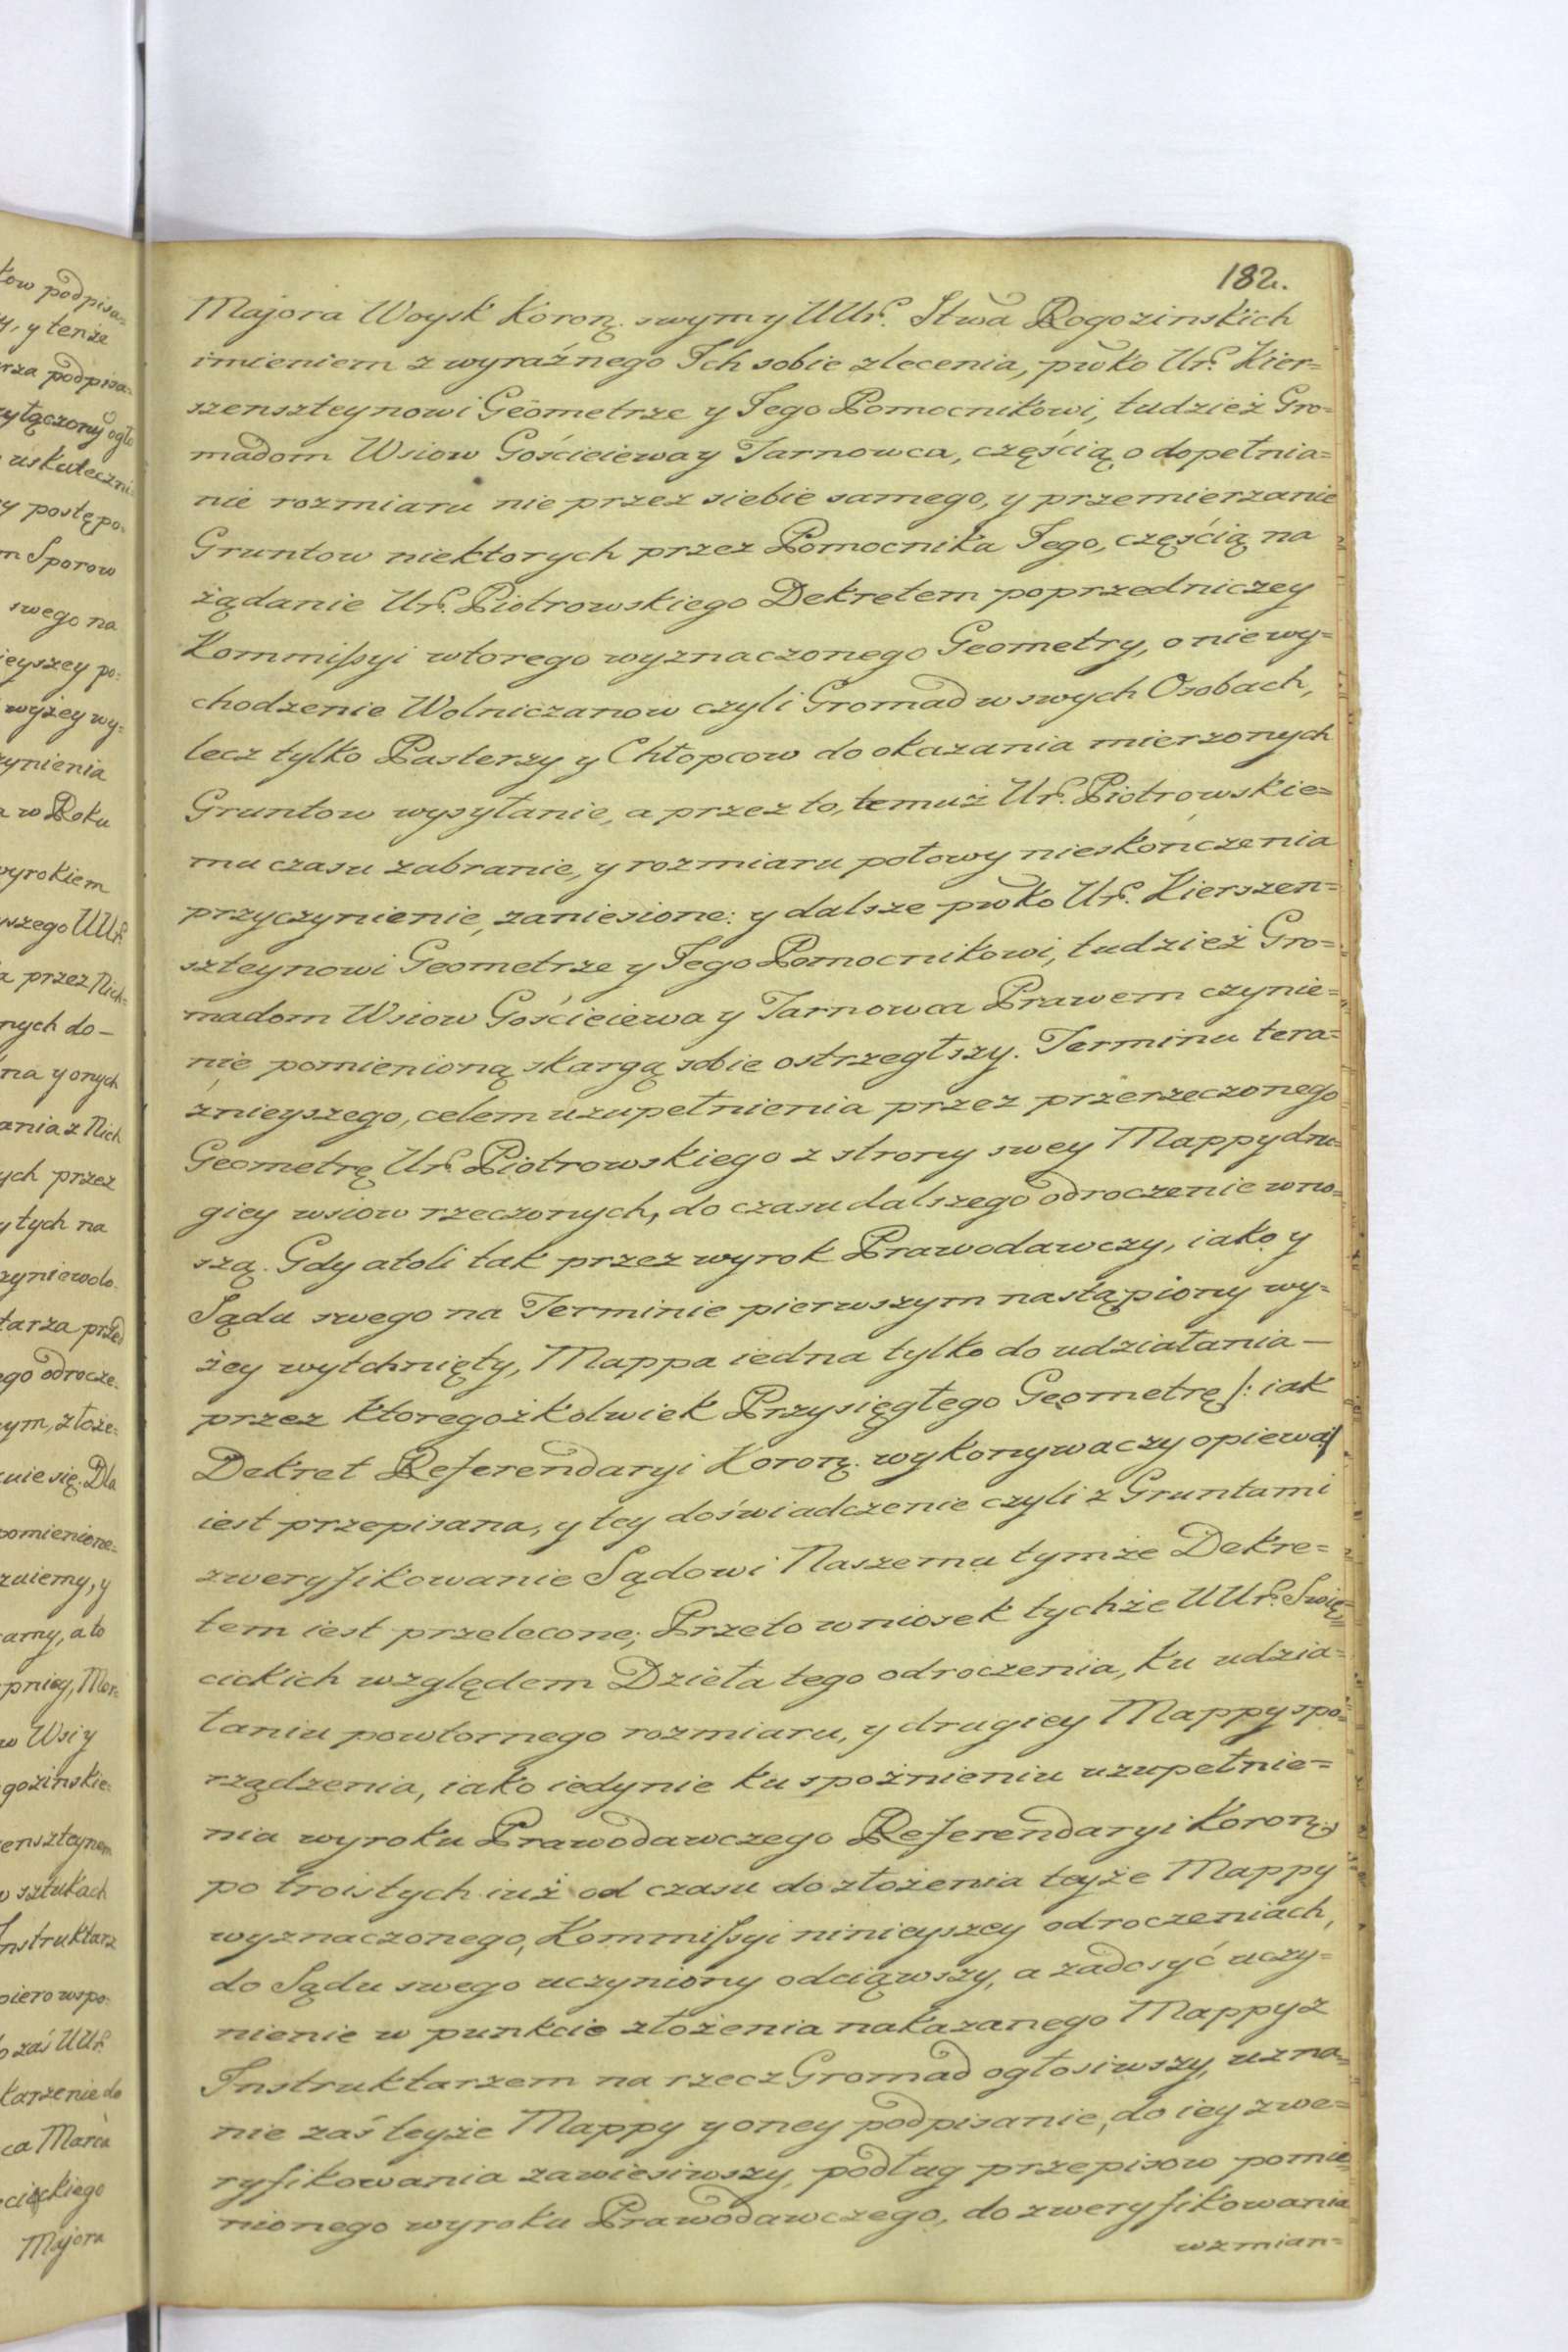 182.
Majora Woysk Koronų. swym y UUr. Stwa Rogozinskich
imieniem z wyraźnego Ich sobie zlecenia, pwko Ur. Kier=
szenszteynowi Geometrze y Jego Pomocnikowi, tudzież Gro=
madom Wsiow Gościeiewa y Tarnowca, częścią o dopełnia=
nie rozmiaru nie przez siebie samego, y przemierzanie
Gruntow niektorych przez Pomocnika Jego, częścią na
żądanie Ur. Piotrowskiego Dekretem poprzedniczey
Kommißyi wtorego wyznaczonego Geometry, o nie wy=
chodzenie Wolniczanow czyli Gromad w swych Osobach,
lecz tylko Pasterzy y Chłopcow do okazania mierzonych
Gruntow wysyłanie, a przez to, temuż Ur. Piotrowskie=
mu czasu zabranie, y rozmiaru połowy nieskończenia
przyczynienie, zaniesione: y dalsze pwko Ur. Kierszen=
szteynowi Geometrze y Jego Pomocnikowi, tudzież Gro=
madom Wsiow Gościeiewa y Tarnowca Prawem czynie=
nie pomienioną skargą sobie ostrzegłszy. Terminu tera=
znieyszego, celem uzupełnienia przez przerzeczonego
Geometrę Ur. Piotrowskiego z strony swey Mappy dru=
giey wsiow rzeczonych, do czasu dalszego odroczenie wno=
szą. Gdy atoli tak przez wyrok Prawodawczy, iako y
Sądu swego na Terminie pierwszym nastąpiony wy=
żey wytchnięty, Mappa iedna tylko do udziałania —
przez ktoregożkolwiek Przysięgłego Geometrę /: iak
Dekret Referendaryi Koronų. wykonywaczy opiewa:/
iest przepisana, y tey doświadczenie czyli z Gruntami
zweryfikowanie Sądowi Naszemu tymże Dekre=
tem iest przelecone; Przeto wniosek tychże UUr. Swię=
cickich względem Dzieła tego odroczenia, ku udzia=
łaniu powtornego rozmiaru, y drugiey Mappy spo=
rządzenia, iako iedynie ku spoźnieniu uzupełnie=
nia wyroku Prawodawczego Referendaryi Koronų.
po troistych iuż od czasu do złożenia teyże Mappy
wyznaczonego, Kommißyi ninieyszey odroczeniach,
do Sądu swego uczyniony odciąwszy, a zadosyć uczy=
nienie w punkcie złożenia nakazanego Mappy z
Instruktarzem na rzecz Gromad ogłosiwszy, uzna=
nie zaś teyże Mappy y oney podpisanie, do iey zwe=
ryfikowania zawiesiwszy, podług przepisow pomie=
nionego wyroku Prawodawczego, do zweryfikowania
wzmian=